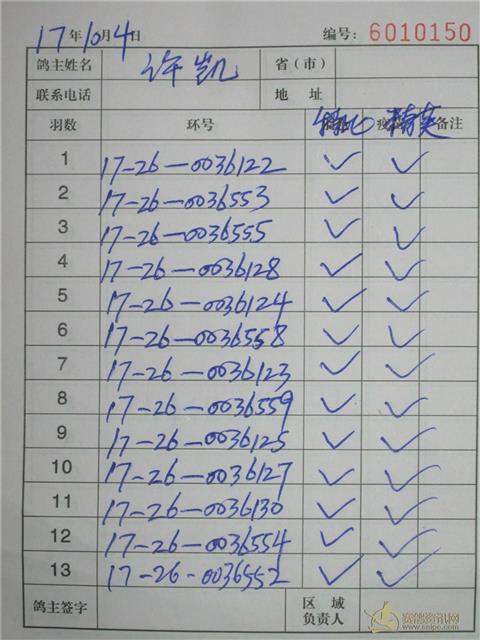 17年10月4日 编号: 6010150
鸽主姓名 许凯 省（市）
联系电话 地 址
羽数 环号 备注
1 17-26-0036122 ✓ ✓
2 17-26-0036553 ✓ ✓
3 17-26-0036555 ✓ ✓
4 17-26-0036128 ✓ ✓
5 17-26-0036124 ✓ ✓
6 17-26-0036558 ✓ ✓
7 17-26-0036123 ✓ ✓
8 17-26-0036559 ✓ ✓
9 17-26-0036125 ✓ ✓
10 17-26-0036127 ✓ ✓
11 17-26-0036130 ✓ ✓
12 17-26-0036554 ✓ ✓
13 17-26-0036552 ✓ ✓
鸽主签字 区 域
负责人
赛鸽资讯网
www.saige.com